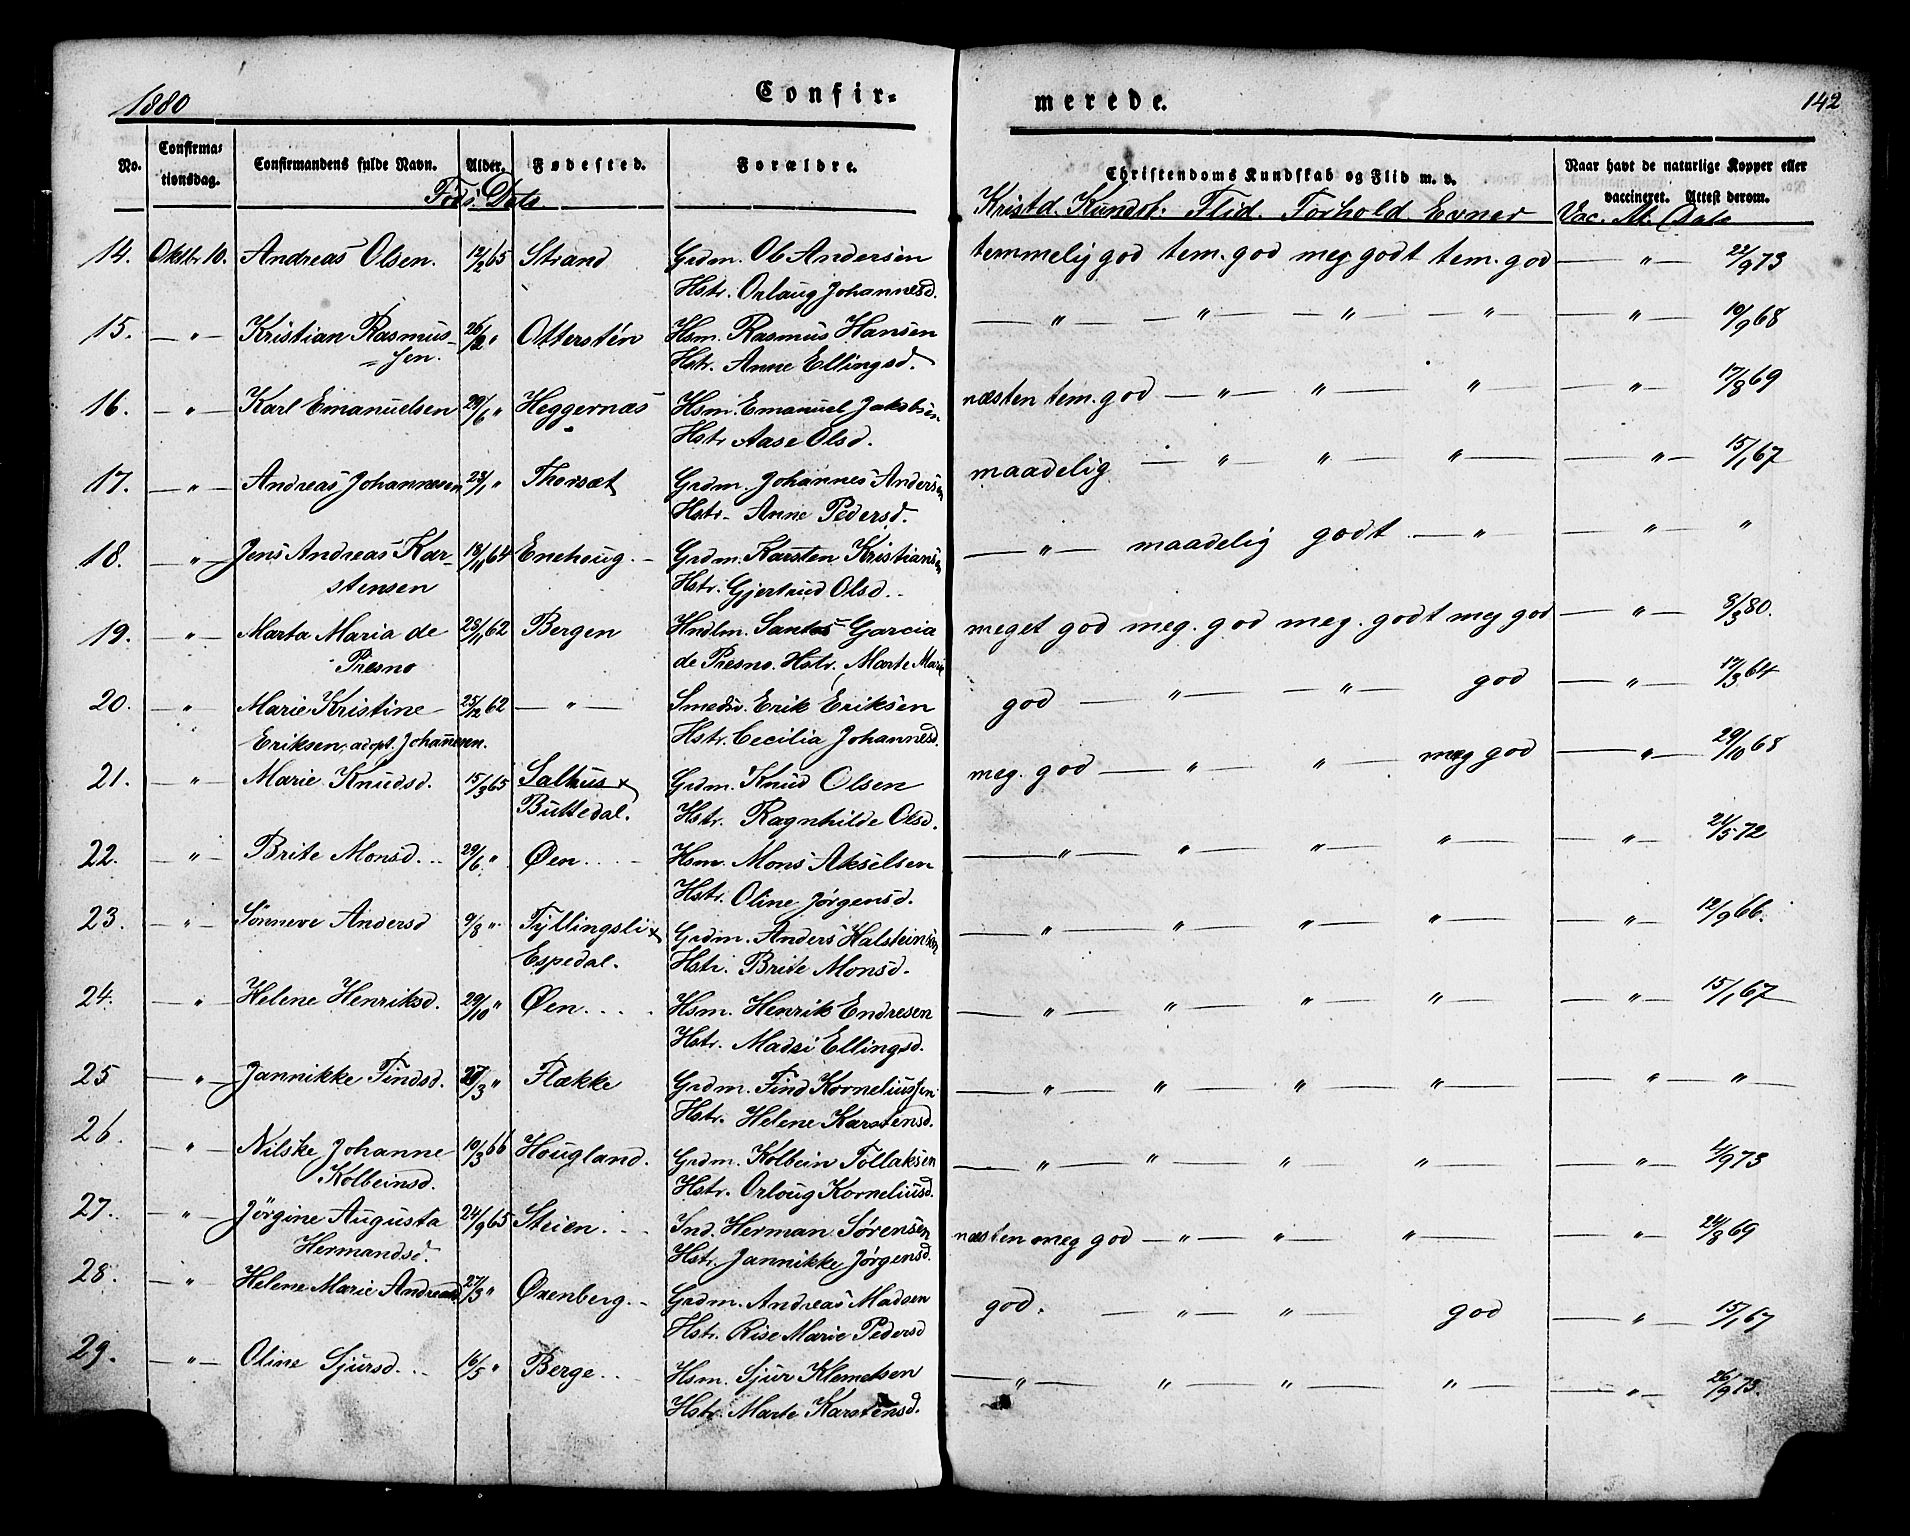 1880 Confir- merede. 142
No. Confirma- Confirmandens fulde Navn. Alder. Fødested. Forældre. Christendoms Kundskab og Flid m. v. Naar havt de naturlige Kopper eller
tionsdag. vaccineret. Attest derom.
Føds. Dato Kristd. Kundsk. Flid. Forhold Evner Vac. At. Dato
14. Oktbr 10. Andreas Olsen. 12/2 65 Strand Grdm. Ole Andersen temmelig god tem. god meg godt tem. god — " — 22/9 73
Hstr. Orlaug Johannesd.
15. — " — Kristian Rasmus- 26/12 " Otterstén Hsm. Rasmus Hansen — " — — " — — " — — " — — " — 10/9 68
=sen. Hstr. Anne Ellingsd.
16. — " — Karl Emanuelsen 29/6 " Heggernæs Hsm. Emanuel Jakobsen næsten tem. god — " — " — " — " — 17/8 69
Hstr Aase Olsd.
17. — " — Andreas Johannesen 23/1 " Thorsæt Grdm. Johannes Andersen maadelig — " — " — " — — " — 15/1 67
Hstr- Anne Pedersd.
18. " — Jens Andreas Kar- 18/11 64 Enehoug. Grdm. Karsten Kristiansen — " — maadelig godt — " — — " — "
stensen Hstr. Gjertrud Olsd.
19. — " — Marta Maria de 28/1 62 Bergen Hndlm. Santos Garcia meget god meg. god meg. godt meg god — " — 8/3 80.
Presno de Presno. Hstr. Marte Marie
20. — " — Marie Kristine 25/12 62 — " — Smedsv. Erik Eriksen god — " — — " — god — " — 17/3 64
Eriksen, adopt. Johannesen. Hstr. Cecilia Johannesd.
21. — " — Marie Knudsd. 15/3 65 Salhus x Grdm. Knud Olsen meg. god — " — " — meg god — " — 29/10 68
Buttedal. Hstr. Ragnhilde Olsd.
22. — " — Brite Monsd. 29/6 " Øen. Hsm. Mons Akselsen — " — " — " — " — — " — 21/5 72
Hstr. Oline Jørgensd.
23. " — Sønneve Andersd 9/8 " Tyllingsli x Grdm. Anders Halsteinsen — " — " — " — " — — " — 12/9 66.
Espedal. Hstr. Brite Monsd.
24. — " Helene Henriksd. 29/10 " Øen. Hsm. Henrik Endresen — " — " — " — " — — " — 15/1 67
Hstr. Madsi Ellingsd.
25 — " — Jannikke Findsd. 27/3 " Flække Grdm. Find Korneliussen — " — " — " — " — " — " —
Hstr. Helene Karstensd.
26. — " — Nilske Johanne 10/3 66 Hougland. Grdm. Kolbein Tollaksen — " — " — " — " — — " — 4/9 73
Kolbeinsd. Hstr. Orloug Korneliusd.
27. — " — Jørgine Augusta 24/9 65 Steien. Ind. Herman Sørensen næsten meg god — " — " — " — " — 24/8 69
Hermandsd. Hstr. Jannikke Jørgensd.
28. — " — Helene Marie Andreasd 27/3 " Øxenberg. Grdm. Andreas Madsen god. — " — " — god — " — 15/1 67
Hstr. Rise Marie Pedersd
29. — " — Oline Sjursd. 16/5 " Berge. Hsm. Sjur Klemetsen — " — " — " — " — " — 26/9 73.
Hstr. Marte Karstensd.